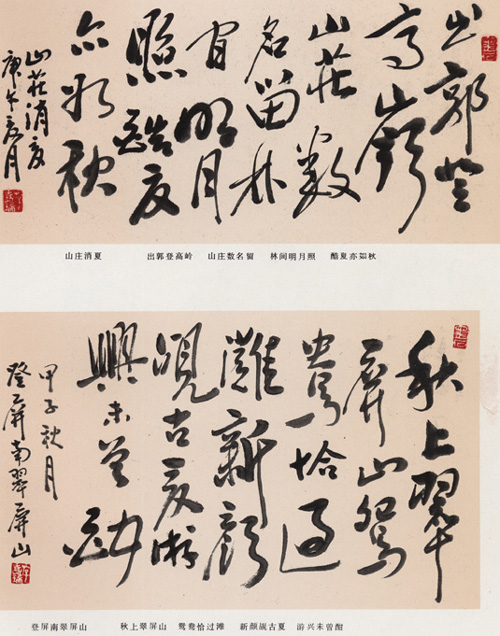 出郭登
高嶺
山莊數
名留林
間明月
照酷夏
亦如秋
山莊消夏
庚午夏月
山庄消夏 出郭登高岭 山庄数名留 林间明月照 酷夏亦如秋
秋上翠
屏山鴛
鴦恰過
灘新顏
覘古夏游
興未曾酣
甲子秋月
登屏南翠屏山
登屏南翠屏山 秋上翠屏山 鸳鸯恰过滩 新颜觇古夏 游兴未曾酣